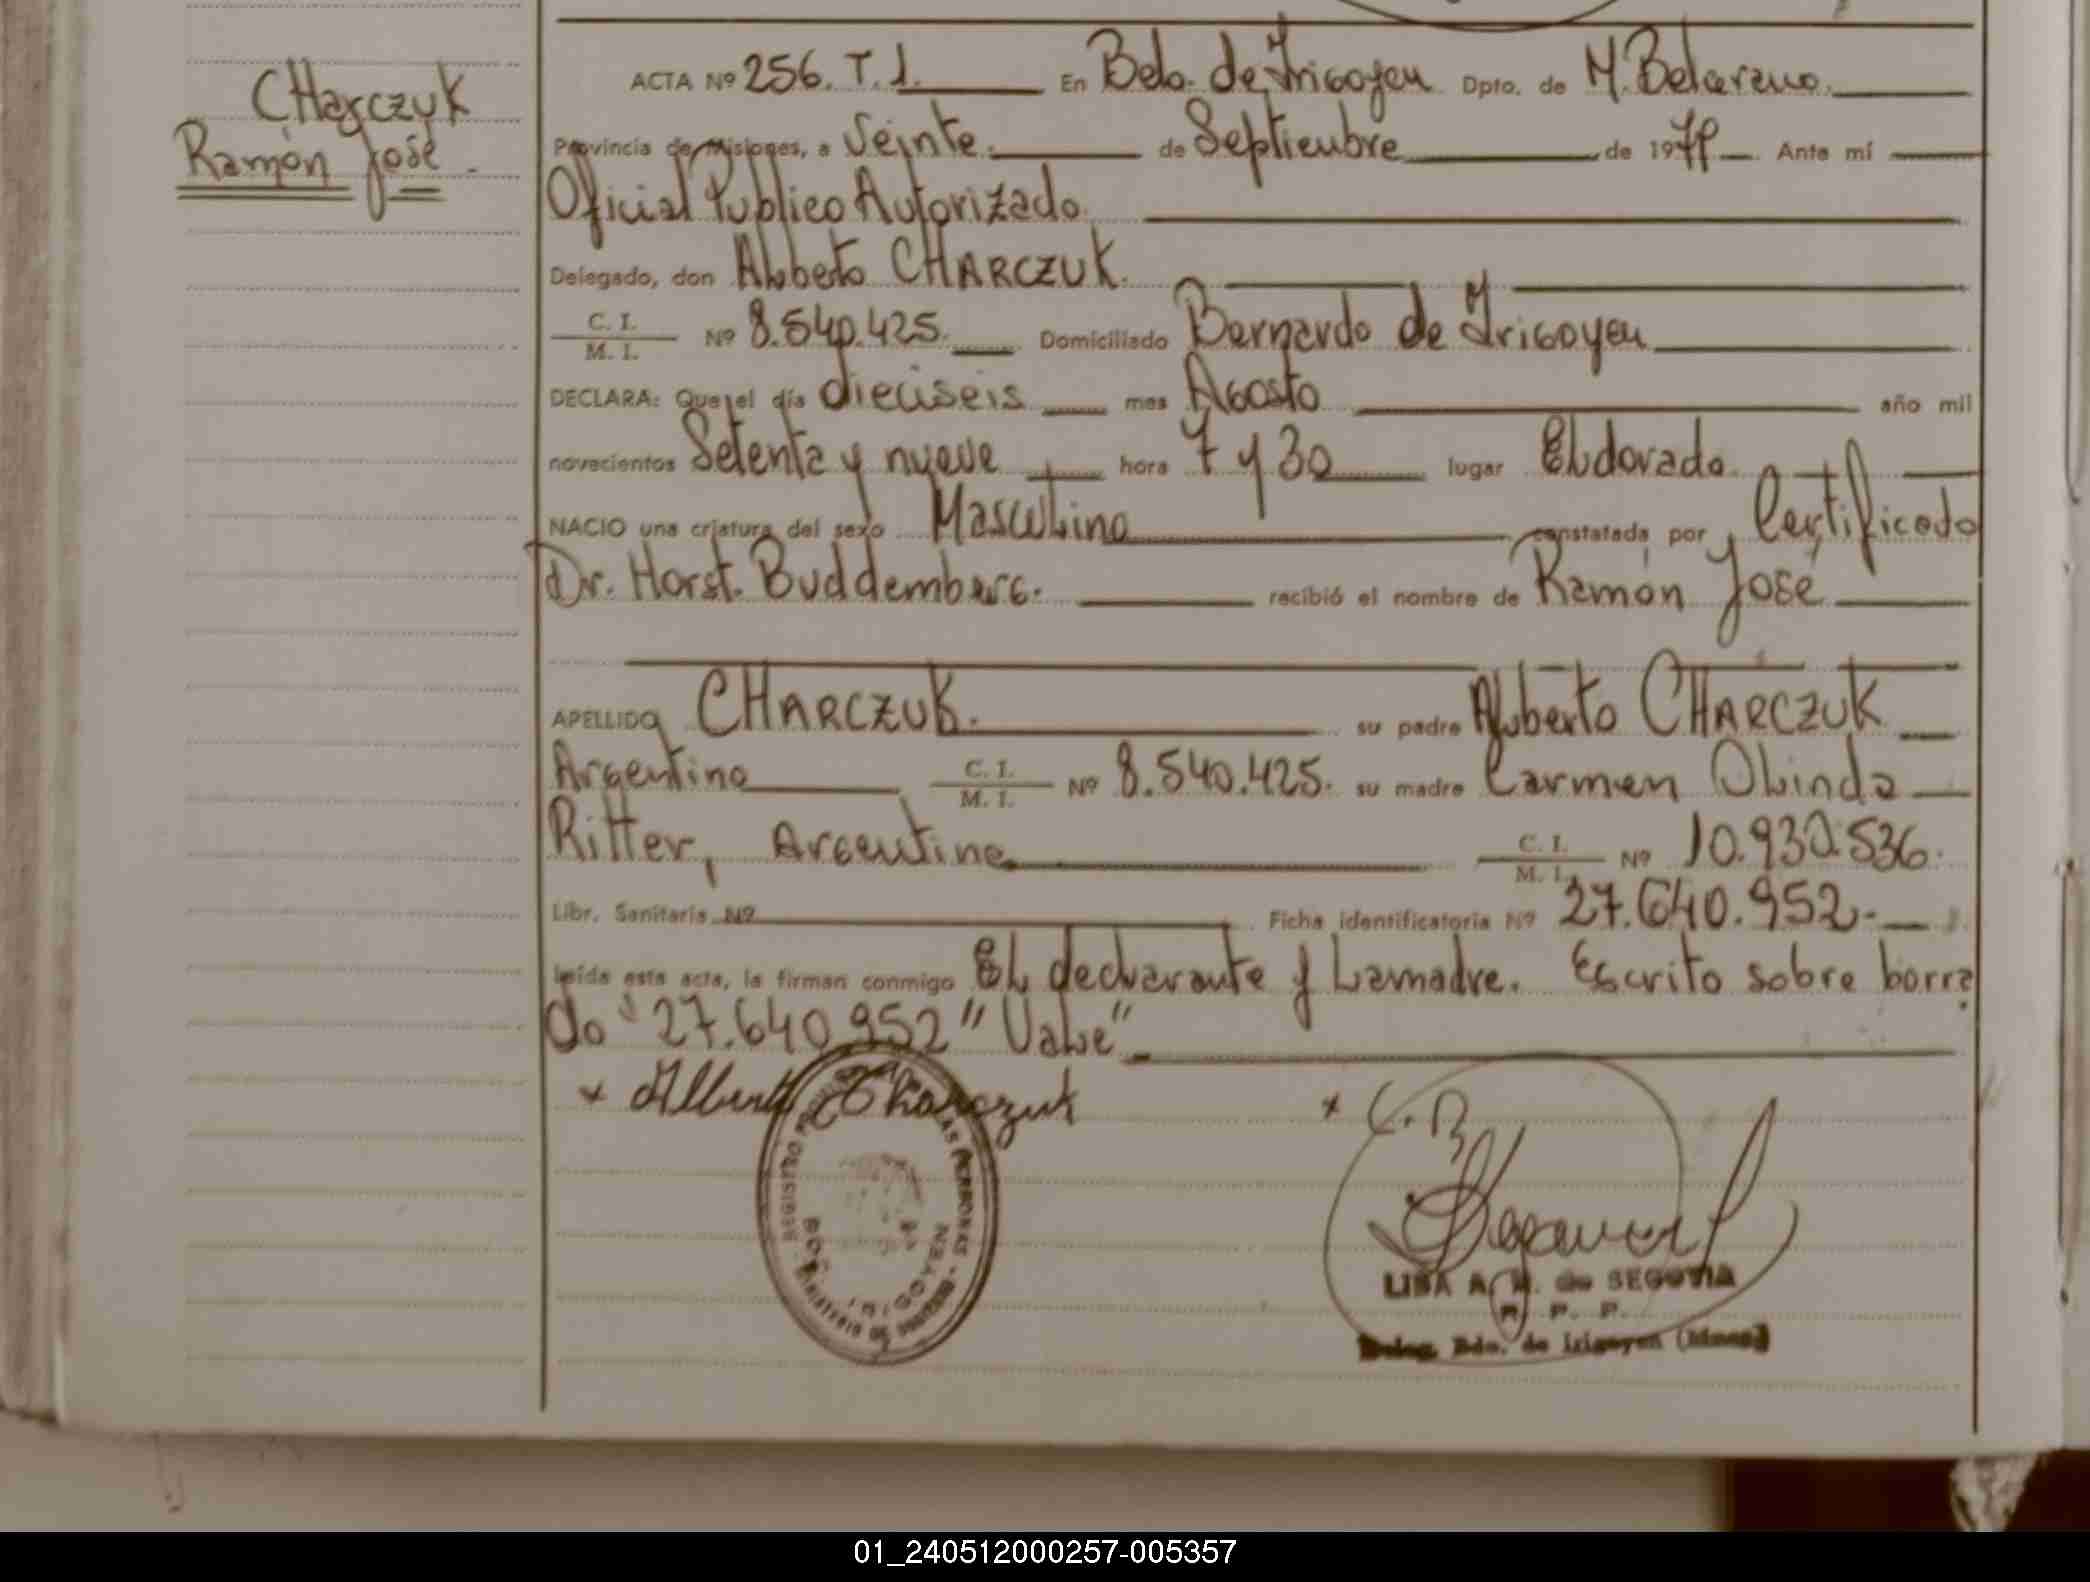 CHarczuk
Ramón José -
ACTA Nº 256. T. 1. En Bdo. de Irigoyen Dpto. de M. Belgrano.
Provincia de Misiones, a Veinte. de Septiembre de 1979 Ante mí
Oficial Publico Autorizado.
Delegado, don Alberto CHARCZUK.
C. I.
M. I. Nº 8.540.425. Domiciliado Bernardo de Irigoyen
DECLARA: Que el día dieciseis mes Agosto año mil
novecientos Setenta y nueve hora 7 y 30 lugar Eldorado.
NACIO una criatura del sexo Masculino constatada por Certificado
Dr. Horst. Buddemberg. recibió el nombre de Ramón José
APELLIDO CHARCZUK. su padre Alberto CHARCZUK
Argentino C. I.
M. I. Nº 8.540.425. su madre Carmen Olinda
Ritter, Argentina C. I.
M. I. Nº 10.930.536.
Libr. Sanitaria Nº Ficha identificatoria Nº 27.640.952.-
leída esta acta, la firman conmigo El declarante y La madre. Escrito sobre borra
do "27.640.952" Vale"
x Alberto Charczuk x C. R
REGISTRO PERSONAS
BDO. IRIGOYEN
LISA A. M. de SEGOVIA
R. P. P.
Deleg. Bdo. de Irigoyen (Mnes)
01_240512000257-005357